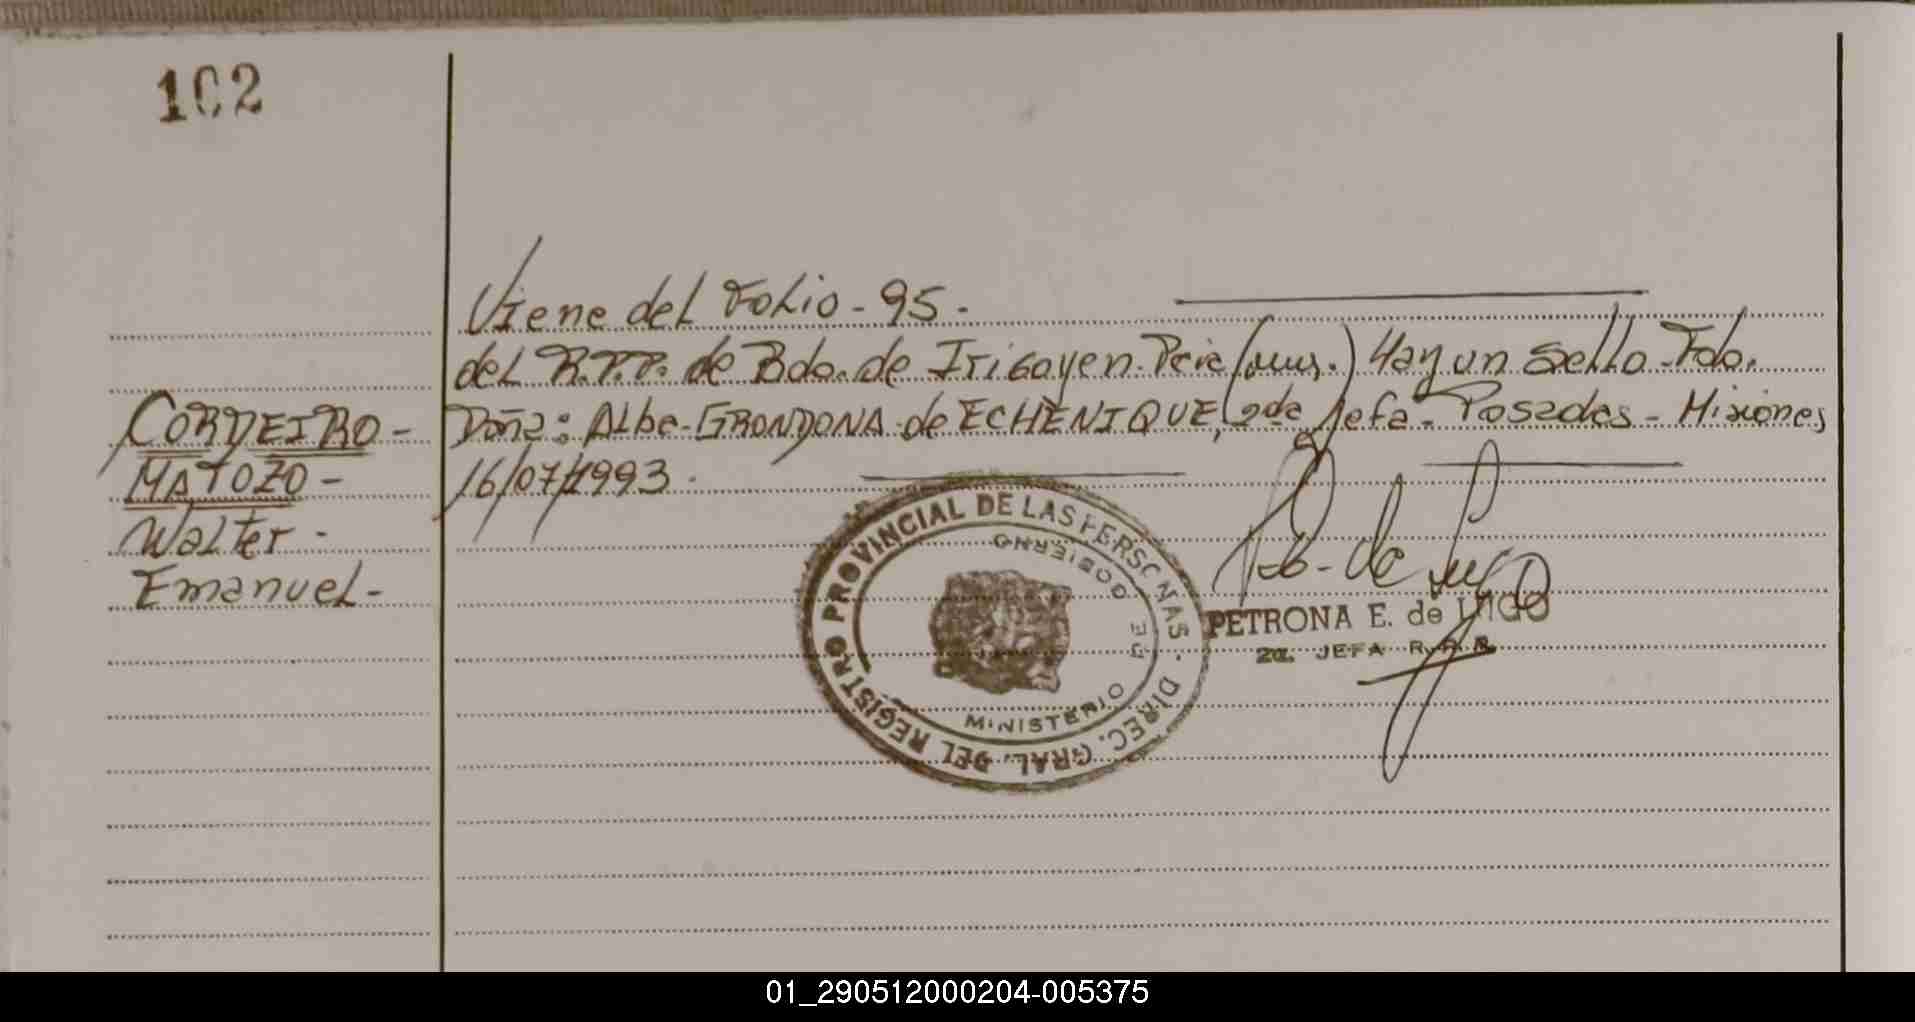 102
Viene del Folio - 95 -
del R.P.P. de Bdo. de Irigoyen. Pcia (mns.) Hay un sello - Fdo.
CORDEIRO -
Doña: Alba - GRONDONA de ECHENIQUE, 2da Jefa - Posadas - Misiones
MATOZO -
16/07/1993.
Walter -
Emanuel -
DIREC. GRAL. DEL REGISTRO PROVINCIAL DE LAS PERSONAS -
MINISTERIO DE GOBIERNO
P.E. de Lugo
PETRONA E. de LUGO
2a. JEFA R.P.P.
01_290512000204-005375